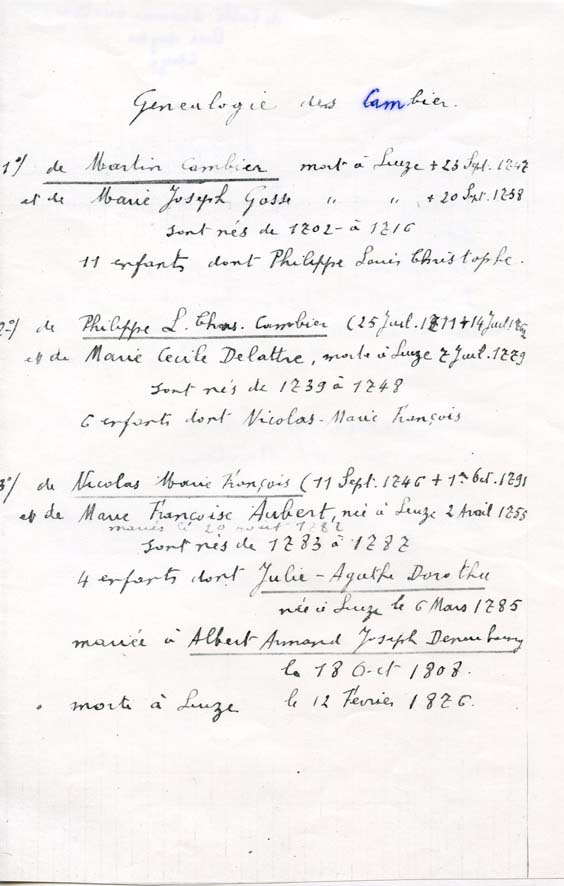 Genealogie des Cambier.
1°/ de Martin Cambier mort à Leuze + 23 Sept. 1747
et de Marie Joseph Gosse " " + 20 Sept. 1738
sont nés de 1702 - à 1716
11 enfants dont Philippe Louis Christophe.
2°/ de Philippe L. Chris. Cambier (25 Juil. 1711 + 14 Juil
et de Marie Cecile Delattre, morte à Leuze 7 Juil. 1779
sont nés de 1739 à 1748
6 enfants dont Nicolas-Marie François
3°/ de Nicolas Marie François (11 Sept. 1746 + 1er Oct. 1791
et de Marie Françoise Aubert, née à Leuze 2 Avril 1753
mariés le 20 aout 1782
sont nés de 1783 à 1787
4 enfants dont Julie-Agathe Dorothée
née à Leuze le 6 Mars 1785
mariée à Albert Armand Joseph Denembourg
le 18 Oct 1808.
morte à Leuze le 12 Février 1876.